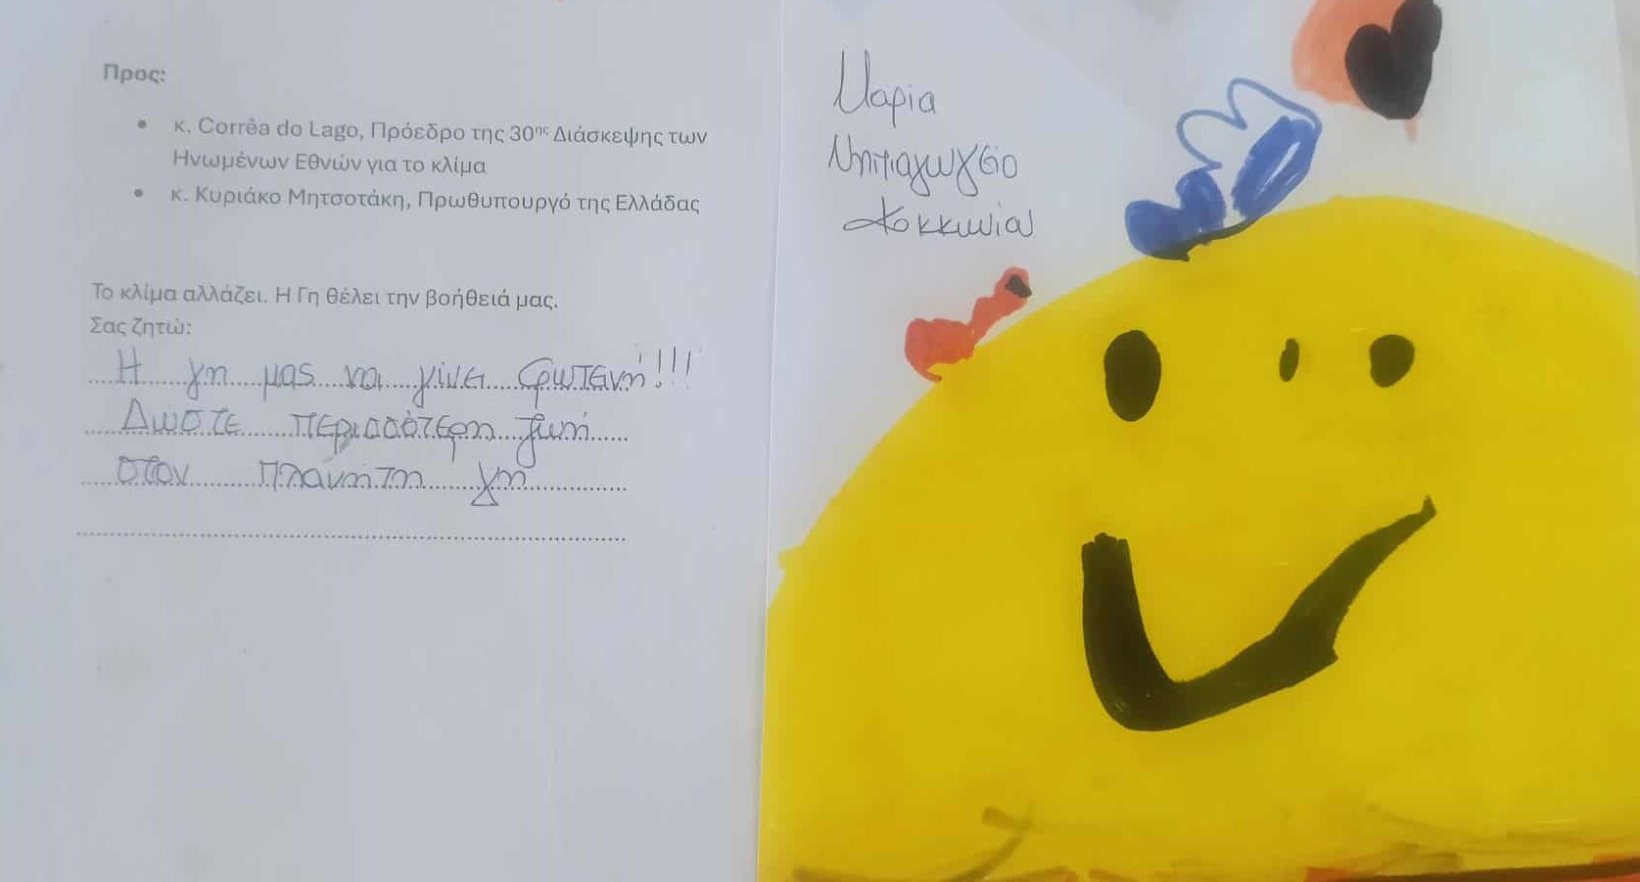 Προς:
• κ. Corrêa do Lago, Πρόεδρο της 30ης Διάσκεψης των
Ηνωμένων Εθνών για το κλίμα
• κ. Κυριάκο Μητσοτάκη, Πρωθυπουργό της Ελλάδας
Το κλίμα αλλάζει. Η Γη θέλει την βοήθειά μας.
Σας ζητώ:
Η γη μας να γίνει φωτεινή!!!
Δώστε περισσότερη ζωή
στον πλανήτη γη
Μαρία
Νηπιαγωγείο
Κοκκινιά